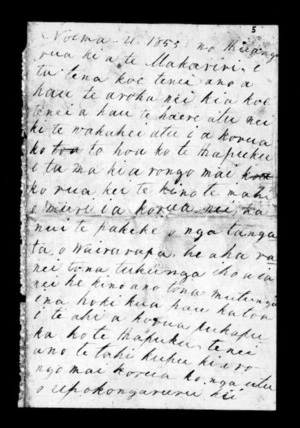 5
Noema 4 1853 no Hiringa
rua ki a te Makarini, e
ta tena koe tenei ano a
hau te aroha nei kia koe
tenei a hau te haere atu nei
ki te wakuhei atu i a korua
ko to hoa ko te Hapuku
e ta ma kia rongo mai
ko rua kei te kino te mahi
o muri i a korua nei, ka
nui te pakeke o nga tanga
ta o Wairarapa, he aha ra
nei tona tukunga iho a ia
nei he kino ano tona mutunga
ina hoki kua hau katoa
i te ahi a korua pukapu
ka ko te Hapuku, tenei
ano te tahi kupu kia ro
ngo mai korua ko nga utu
o upokongaruru kei